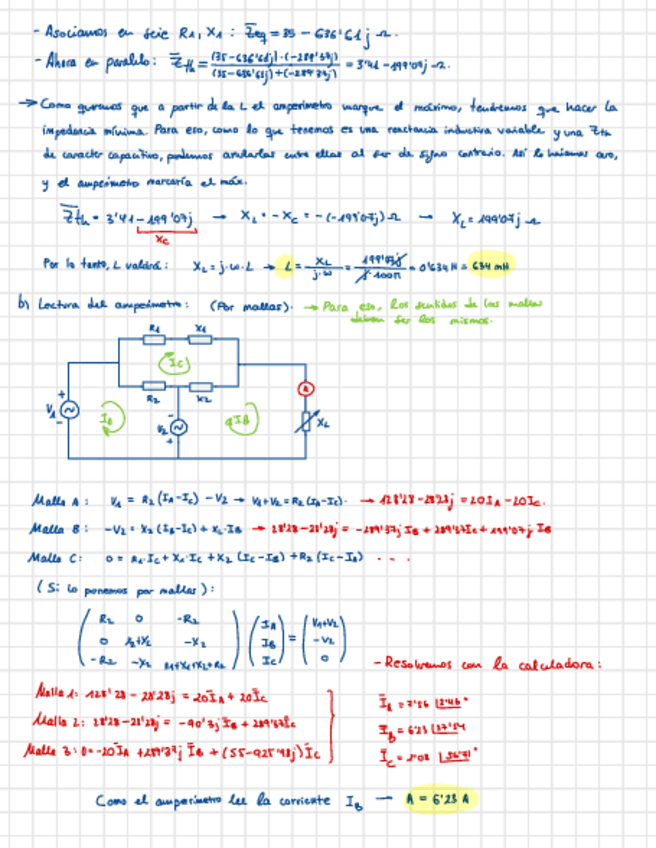 - Asociamos en serie R1, X1 : Z̅eq = 35 - 636'61j Ω.
- Ahora en paralelo: Z̅th = (35-636'61j)·(-289'37j) / (35-636'61j)+(-289'37j) = 3'41 - 199'07j Ω.
→ Como queremos que a partir de la L el amperímetro marque el máximo, tendremos que hacer la
impedancia mínima. Para eso, como lo que tenemos es una reactancia inductiva variable y una Zth
de caracter capacitivo, podemos anularlas entre ellas al ser de signo contrario. Así lo haríamos
y el amperímetro marcaría el máx.
Z̅th = 3'41 - 199'07j → XL = -XC = -(-199'07j) Ω → XL = 199'07j Ω
XC
Por lo tanto, L valdrá: XL = j·ω·L → L = XL / j·ω = 199'07j / j·100π = 0'634 H = 634 mH
b) Lectura del amperímetro: (Por mallas). → Para eso, los sentidos de las mallas
deben ser los mismos.
R1 X1
IC
R2 X2
A
V1 IA V2 IB XL
Malla A: V1 = R2 (IA-IC) - V2 → V1+V2 = R2 (IA-IC). → 128'28 - 28'28j = 20IA - 20IC.
Malla B: -V2 = X2 (IB-IC) + XL·IB → 28'28 - 28'28j = -289'37j IB + 289'37IC + 199'07j IB
Malla C: 0 = R1·IC + X1·IC + X2 (IC-IB) + R2 (IC-IA) . . .
(Si lo ponemos por mallas):
R2 0 -R2 IA V1+V2
0 X2+XL -X2 IB = -V2
-R2 -X2 R1+X1+X2+R2 IC 0
- Resolvemos con la calculadora:
Malla 1: 128'28 - 28'28j = 20I̅A + 20I̅C
Malla 2: 28'28 - 28'28j = -90'3j I̅B + 289'37I̅C
Malla 3: 0 = -20I̅A + 289'37j I̅B + (55-925'98j) I̅C
I̅A =
I̅B = 6'23
I̅C =
Como el amperímetro lee la corriente IB → A = 6'23 A